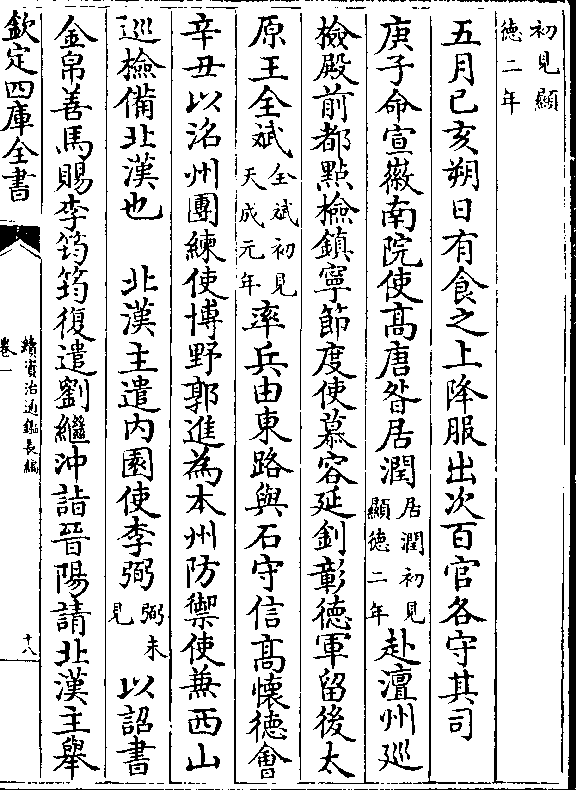 初見顯
徳二年
五月己亥朔日有食之上降服出次百官各守其司
庚子命宣徽南院使髙唐昝居潤居潤初見顯徳二年赴澶州廵
檢殿前都㸃檢鎮寧節度使慕容延釗彰徳軍留後太
原王全斌全斌初見天成元年率兵由東路與石守信髙懷徳會
辛丑以洺州團練使博野郭進為本州防禦使兼西山
廵檢備北漢也　北漢主遣内園使李弼弼未見以詔書
金帛善馬賜李筠筠復遣劉繼沖詣晉陽請北漢主舉
欽定四庫全書
續資治通鑑長編
卷一
十八